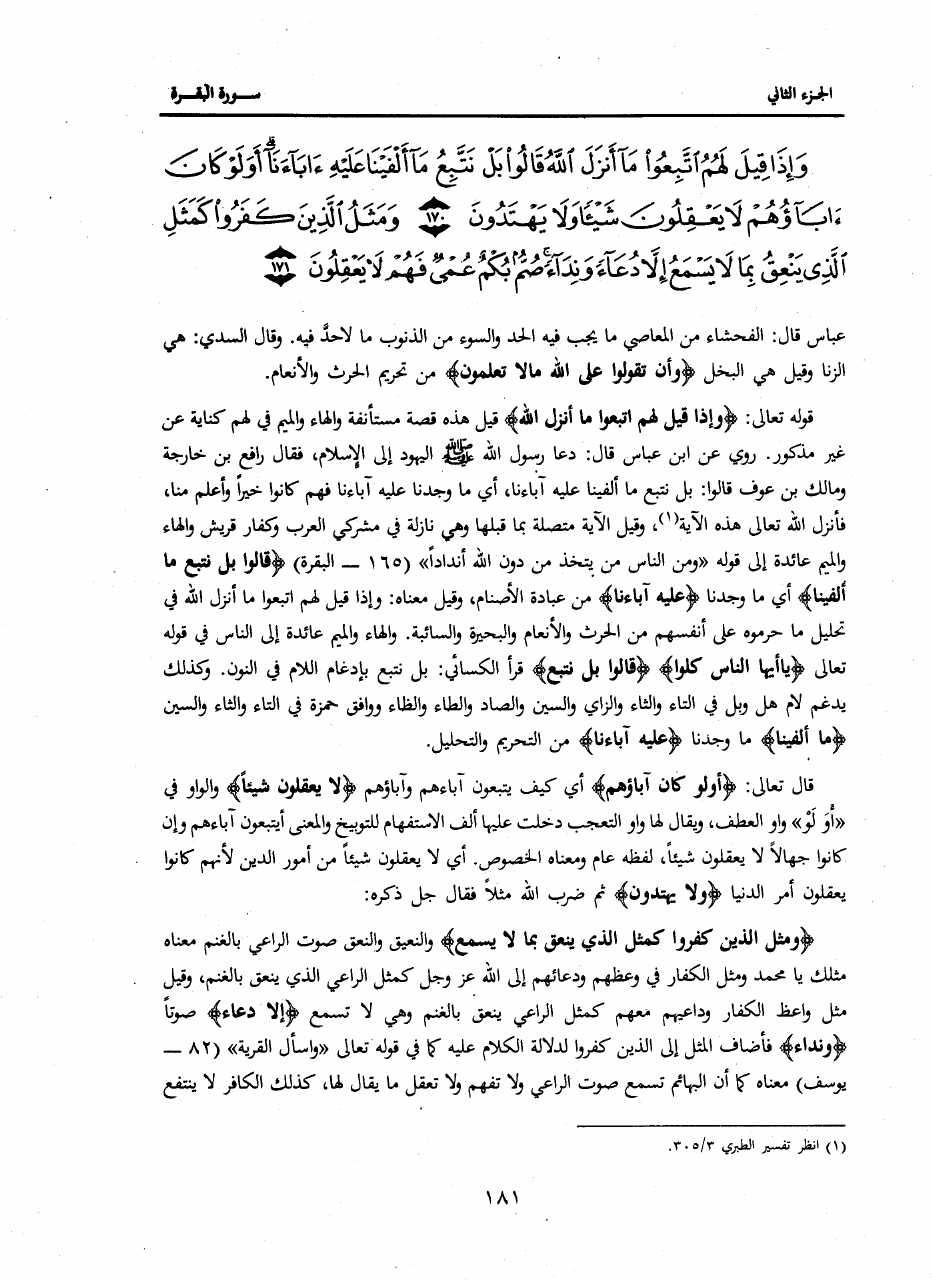 الجزء الثاني
سورة البقرة
وَإِذَا قِيلَ لَهُمُ ٱتَّبِعُوا۟ مَآ أَنزَلَ ٱللَّهُ قَالُوا۟ بَلْ نَتَّبِعُ مَآ أَلْفَيْنَا عَلَيْهِ ءَابَآءَنَآ ۗ أَوَلَوْ كَانَ
ءَابَآؤُهُمْ لَا يَعْقِلُونَ شَيْـًٔا وَلَا يَهْتَدُونَ ١٧٠ وَمَثَلُ ٱلَّذِينَ كَفَرُوا۟ كَمَثَلِ
ٱلَّذِى يَنْعِقُ بِمَا لَا يَسْمَعُ إِلَّا دُعَآءً وَنِدَآءً ۚ صُمٌّۢ بُكْمٌ عُمْىٌ فَهُمْ لَا يَعْقِلُونَ ١٧١
عباس قال: الفحشاء من المعاصي ما يجب فيه الحد والسوء من الذنوب ما لاحدَّ فيه. وقال السدي: هي
الزنا وقيل هي البخل ﴿وأن تقولوا على الله مالا تعلمون﴾ من تحريم الحرث والأنعام.
قوله تعالى: ﴿وإذا قيل لهم اتبعوا ما أنزل الله﴾ قيل هذه قصة مستأنفة والهاء والميم في لهم كناية عن
غير مذكور. روي عن ابن عباس قال: دعا رسول الله ﷺ اليهود إلى الإسلام، فقال رافع بن خارجة
ومالك بن عوف قالوا: بل نتبع ما ألفينا عليه آباءنا، أي ما وجدنا عليه آباءنا فهم كانوا خيراً وأعلم منا،
فأنزل الله تعالى هذه الآية(١)، وقيل الآية متصلة بما قبلها وهي نازلة في مشركي العرب وكفار قريش والهاء
والميم عائدة إلى قوله «ومن الناس من يتخذ من دون الله أنداداً» (١٦٥ ــ البقرة) ﴿قالوا بل نتبع ما
ألفينا﴾ أي ما وجدنا ﴿عليه آباءنا﴾ من عبادة الأصنام، وقيل معناه: وإذا قيل لهم اتبعوا ما أنزل الله في
تحليل ما حرموه على أنفسهم من الحرث والأنعام والبحيرة والسائبة. والهاء والميم عائدة إلى الناس في قوله
تعالى ﴿ياأيها الناس كلوا﴾ ﴿قالوا بل نتبع﴾ قرأ الكسائي: بل نتبع بإدغام اللام في النون. وكذلك
يدغم لام هل وبل في التاء والثاء والزاي والسين والصاد والطاء والظاء ووافق حمزة في التاء والثاء والسين
﴿ما ألفينا﴾ ما وجدنا ﴿عليه آباءنا﴾ من التحريم والتحليل.
قال تعالى: ﴿أولو كان آباؤهم﴾ أي كيف يتبعون آباءهم وآباؤهم ﴿لا يعقلون شيئاً﴾ والواو في
«أَوَ لَوْ» واو العطف، ويقال لها واو التعجب دخلت عليها ألف الاستفهام للتوبيخ والمعنى أيتبعون آباءهم وإن
كانوا جهالاً لا يعقلون شيئاً، لفظه عام ومعناه الخصوص. أي لا يعقلون شيئاً من أمور الدين لأنهم كانوا
يعقلون أمر الدنيا ﴿ولا يهتدون﴾ ثم ضرب الله مثلاً فقال جل ذكره:
﴿ومثل الذين كفروا كمثل الذي ينعق بما لا يسمع﴾ والنعيق والنعق صوت الراعي بالغنم معناه
مثلك يا محمد ومثل الكفار في وعظهم ودعائهم إلى الله عز وجل كمثل الراعي الذي ينعق بالغنم، وقيل
مثل واعظ الكفار وداعيهم معهم كمثل الراعي ينعق بالغنم وهي لا تسمع ﴿إلا دعاء﴾ صوتاً
﴿ونداء﴾ فأضاف المثل إلى الذين كفروا لدلالة الكلام عليه كما في قوله تعالى «واسأل القرية» (٨٢ ــ
يوسف) معناه كما أن البهائم تسمع صوت الراعي ولا تفهم ولا تعقل ما يقال لها، كذلك الكافر لا ينتفع
(١) انظر تفسير الطبري ٣٠٥/٣.
١٨١